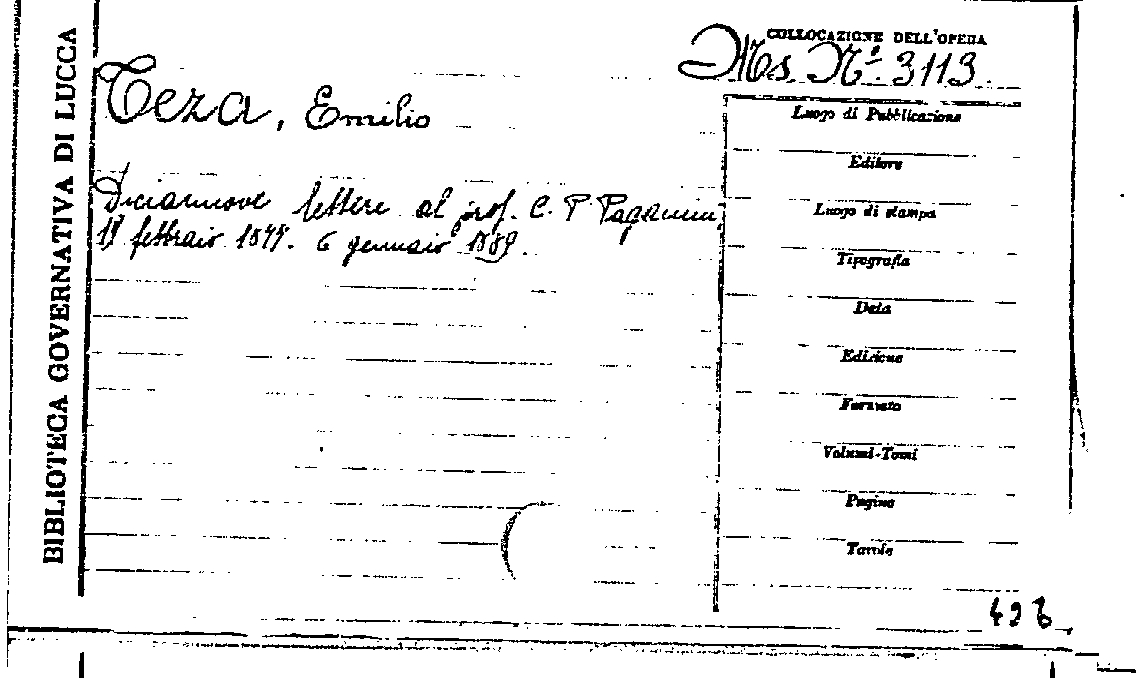 BIBLIOTECA GOVERNATIVA DI LUCCA
COLLOCAZIONE DELL'OPERA
Ms. Nº 3113
Teza, Emilio
Diciannove lettere al prof. C. P. Paganini
febbraio 6 gennaio 1889.
Luogo di Pubblicazione
Editore
Luogo di stampa
Tipografia
Data
Edizione
Formato
Volumi-Tomi
Pagine
Tavole